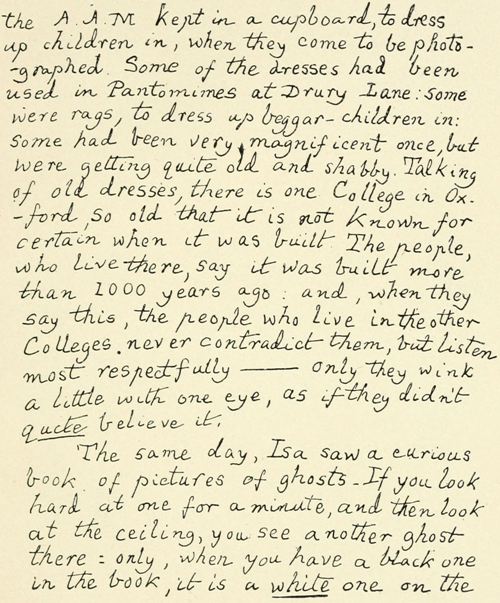 the A.A.M kept in a cupboard, to dress
up children in, when they come to be photo-
-graphed. Some of the dresses had been
used in Pantomimes at Drury Lane: some
were rags, to dress up beggar-children in:
some had been very magnificent once, but
were getting quite old and shabby. Talking
of old dresses, there is one College in Ox-
-ford, so old that it is not known for
certain when it was built. The people,
who live there, say it was built more
than 1000 years ago: and, when they
say this, the people who live in the other
Colleges never contradict them, but listen
most respectfully — only they wink
a little with one eye, as if they didn't
quite believe it.
The same day, Isa saw a curious
book of pictures of ghosts. If you look
hard at one for a minute, and then look
at the ceiling, you see another ghost
there: only, when you have a black one
in the book, it is a white one on the